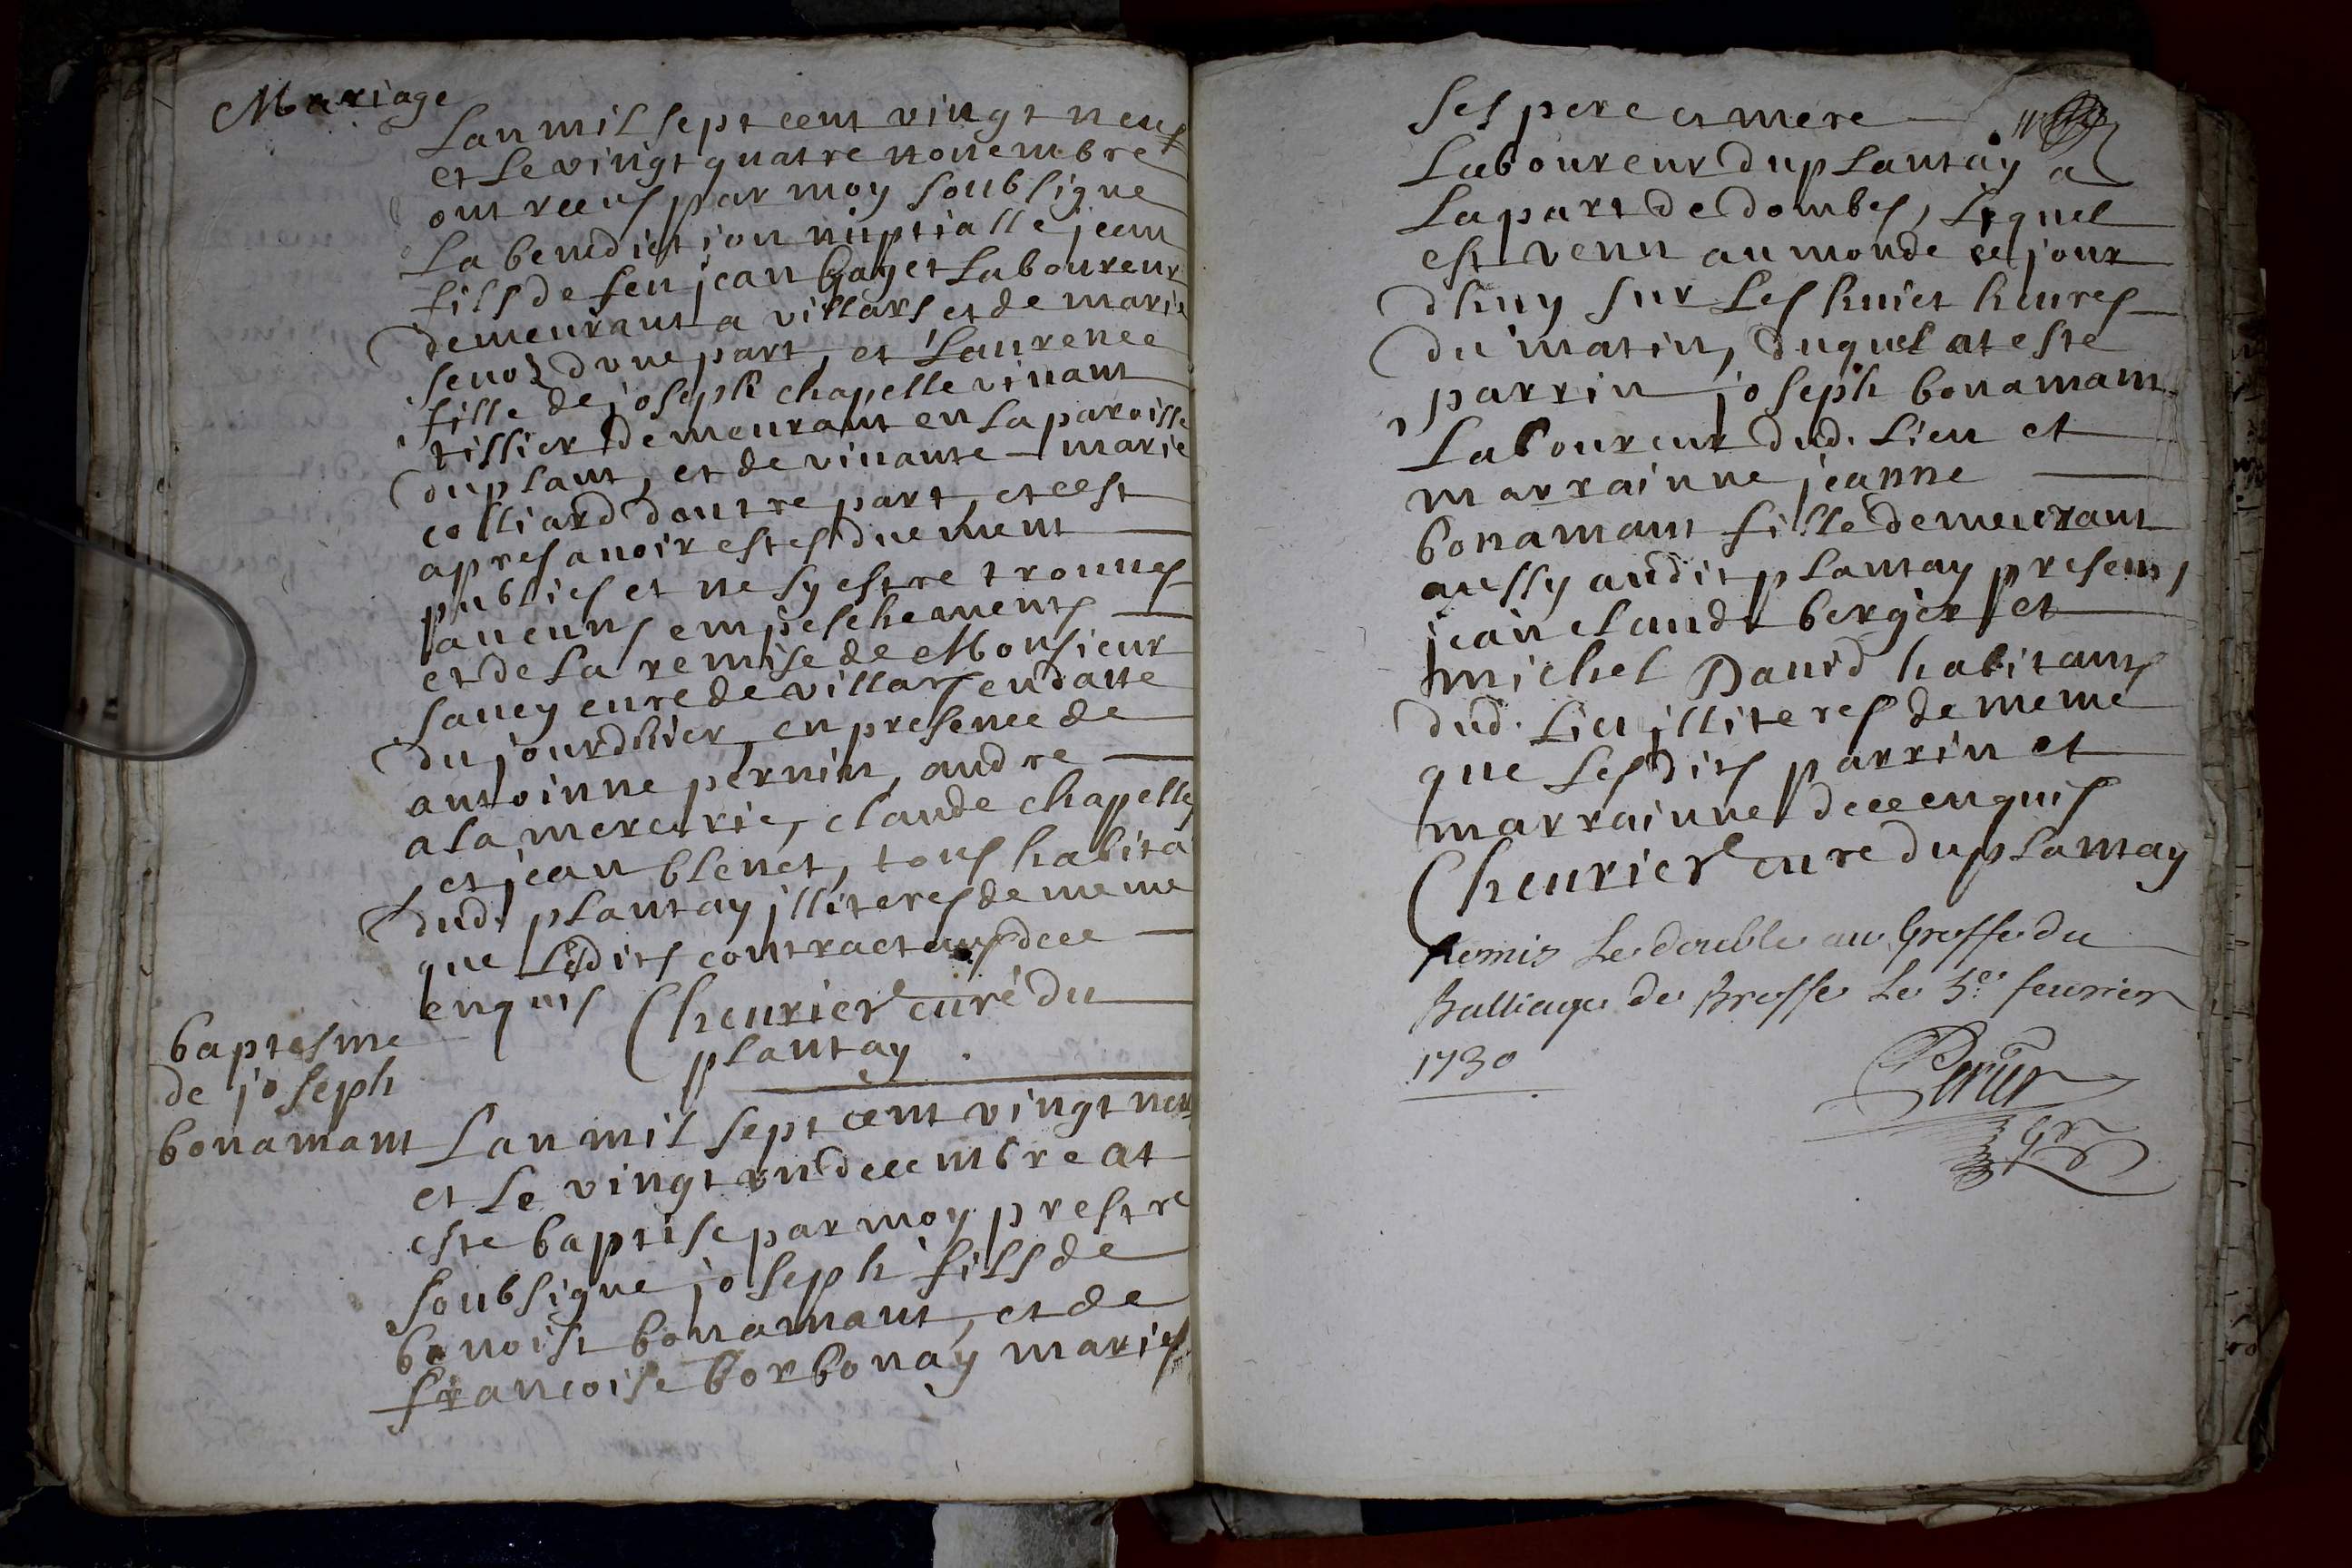 Mariage
Lan mil sept cent vingt neuf
et le vingt quatre nouembre
ont receus par moy soubsigne
La benediction nuptialle jean
fils de feu jean Gayet Laboureur
demeurant a villars et de marie
d'vne part, et Laurence
fille de joseph chapelle viuant
tissier demeurant en la paroisse
du plant, et de viuante marie
colliard dautre part, et cest
apres auoir estes duement
publies et ne sy estre trouues
aucuns empeschements
et de la remise de Monsieur
sauey cure de villars en datte
du jourdhier, en presence de
antoinne pernin, andre
a la mercerie, claude chapelle,
et jean blenet, tous habita
dud. plantay illiteres de meme
que lesdits contractans de ce
enquis Cheurier curé du
plantay .
baptesme
de joseph
bonamant
Lan mil sept cent vingt neuf
et le vingt vn decembre at
este baptise par moy prestre
soubsigne joseph fils de
benoist bonamant, et de
francoise borbonay maries
ses pere et mere
Laboureur du plantay a
la part de dombes, lequel
est venu au monde ce jour
dhuy sur les huict heures
du matin, duquel at este
parrin joseph bonamant
Laboureur dud. lieu et
marrainne jeanne
bonamant fille demeurant
aussy audit plantay presens,
jean claude berger et
michel Dauid habitans
dud. lieu illiteres de meme
que lesdits parrin et
marrainne de ce enquis
Cheurier cure du plantay
Remis le double au Greffe du
Balliage de Bresse le 3e feurier
1730